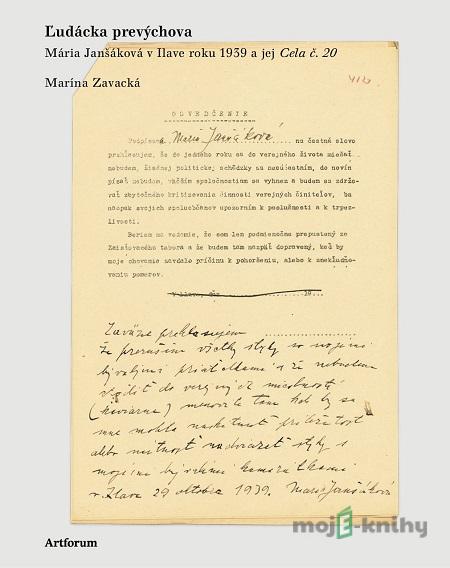 Ľudácka prevýchova
Mária Janšáková v Ilave roku 1939 a jej Cela č. 20
Marína Zavacká
O D V E D Č E N I E
Podpísaná Mária Janšáková na čestné slovo
prehlasujem, že do jedného roku sa do verejného života miešať
nebudem, žiadnej politickej schôdzky sa nesúčastním, do novín
písať nebudem, väčším spoločnostiam sa vyhnem a budem sa zdržo-
vať zbytočného kritizovania činnosti verejných činiteľov, ba
naopak svojich spoluobčanov upozorním k poslušnosti a k trpez-
livosti.
Beriem na vedomie, že som len podmienečne prepustený zo
Zaisťovacieho tábora a že budem tam nazpäť dopravený, keď by
moje chovanie zavdalo príčinu k pohoršeniu, alebo k zneklidňo-
vaniu pomerov.
Zaväzne prehlasujem
že prerušim všetky styky so svojimi
bývalými priateľkami a že nebudem
chodiť do verejných miestností
(kaviarne) menovite tam kde by sa
mne mohla naskytnúť príležitosť
alebo nutnosť nadviazať styky s
mojimi bývalými kamarátkami
v Ilave 29 oktobra 1939. Mária Janšáková
mojE-knihy
Artforum